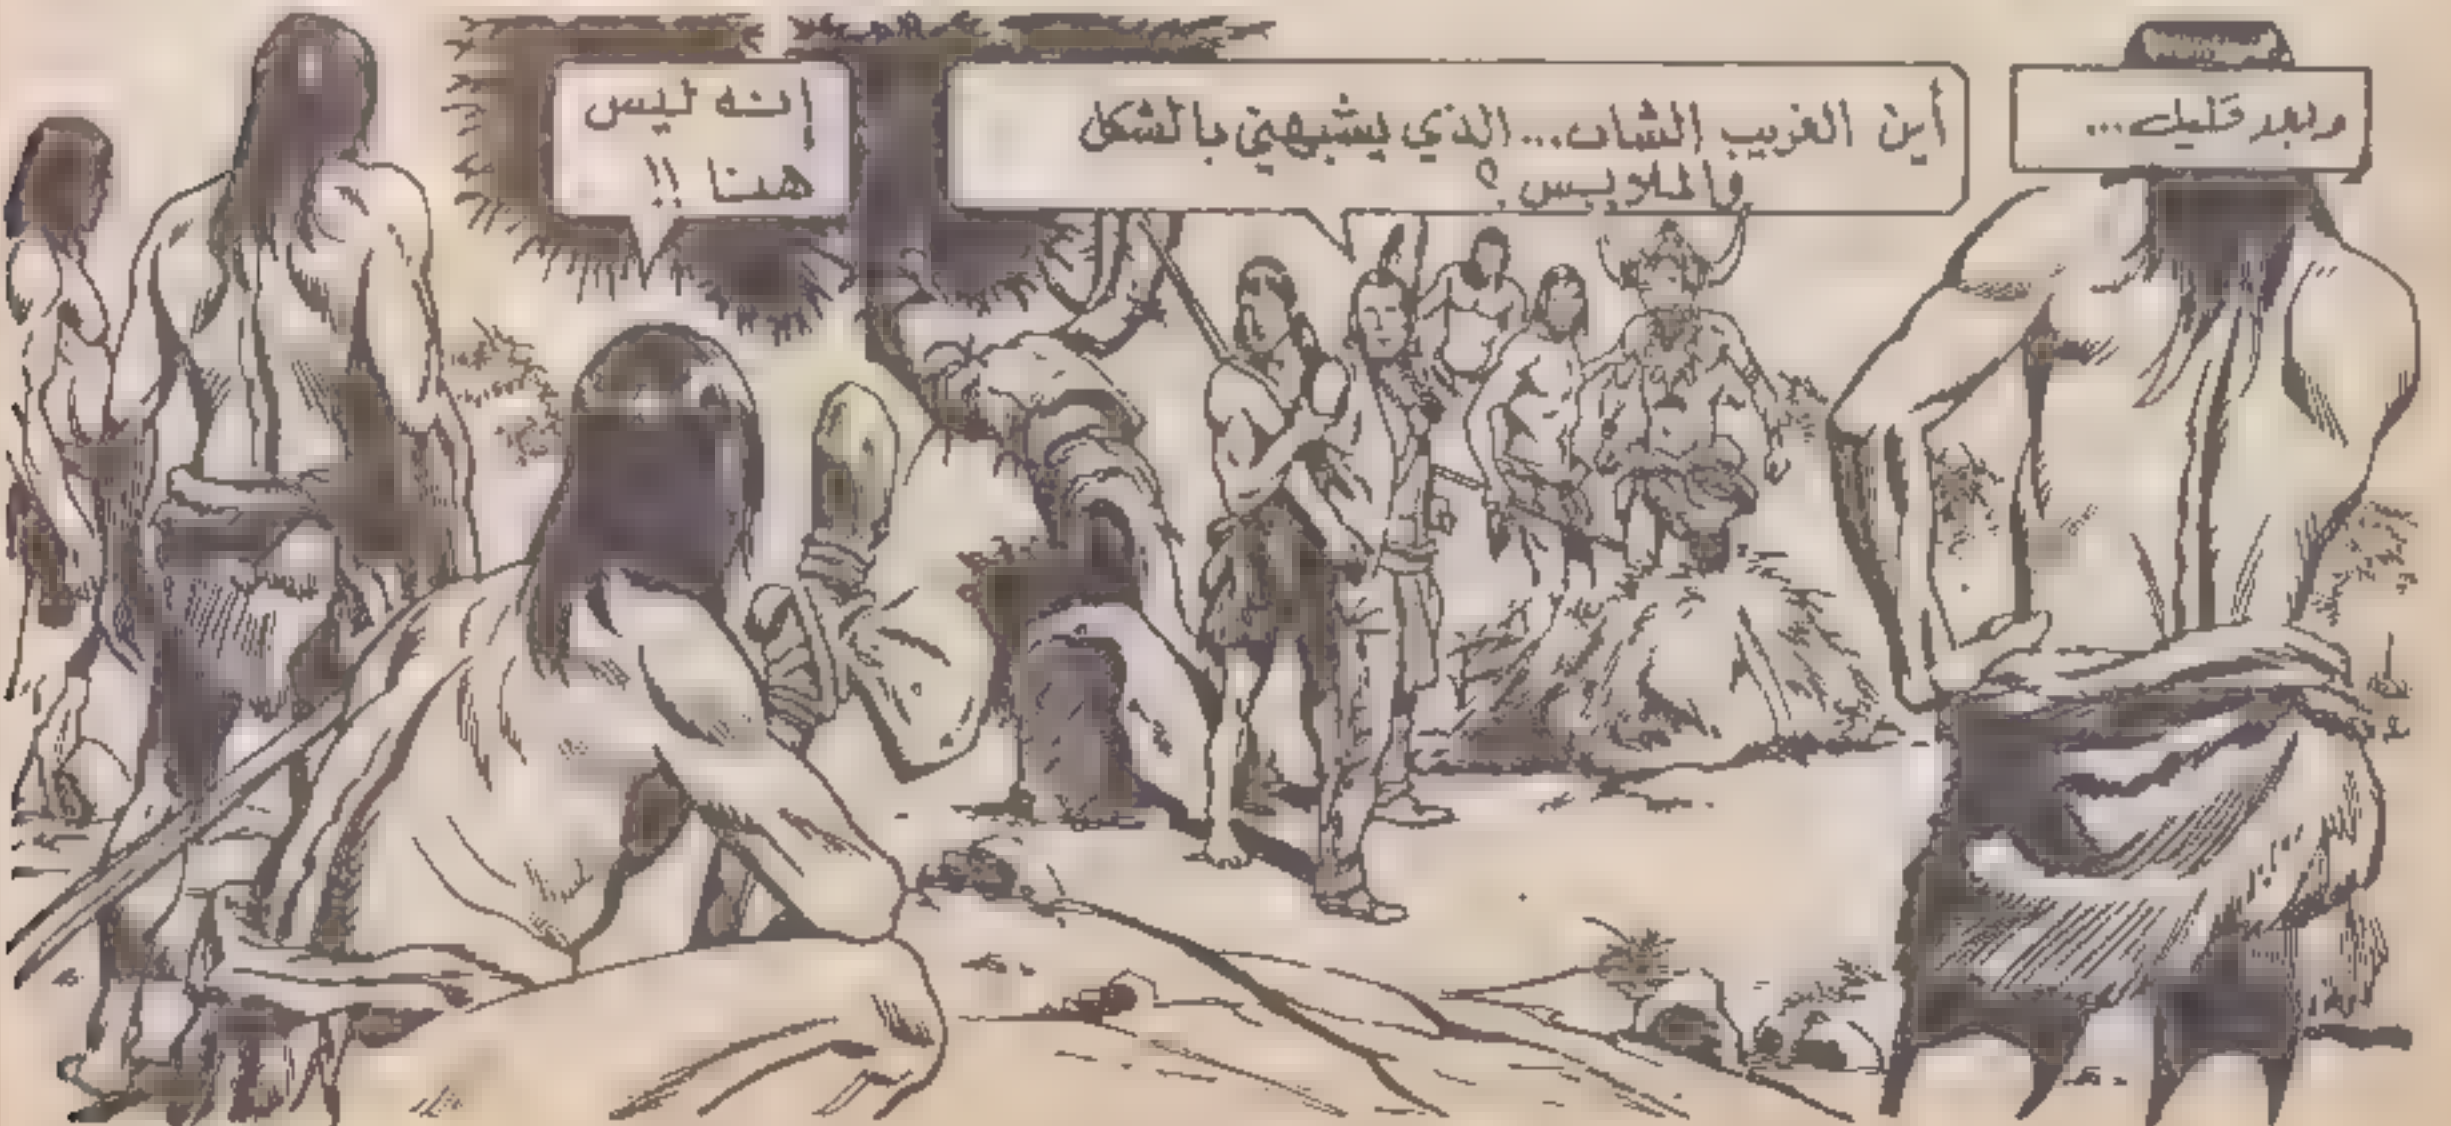 وبعد قليل...
أين الغريب الشاب... الذي يشبهني بالشكل
والملابس؟
إنه ليس
هنا !!